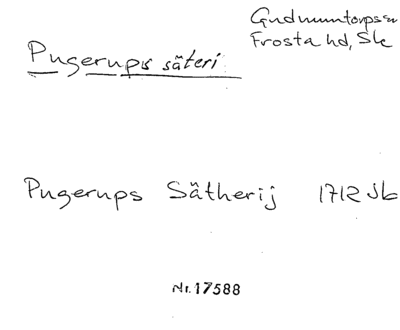 Gudmuntorps sn
Frosta hd, Sk
Pugerups säteri
Pugerups Sätherij 1712 Jb
Nr. 17588